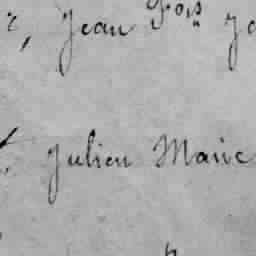 , Jean Fois
Julien Marie